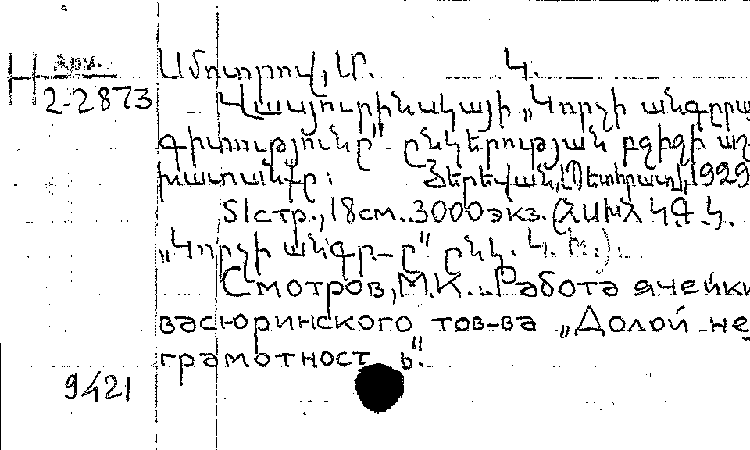 Н арм.
2-2873
Սմոտրով, Մ. Կ.
Վասյուրինսկայի „Կորչի անգրա
գիտությունը" ընկերության բջիջի աշ
խատանքը: Յերեվան, Պետհրատ, 1929
51стр., 18см. 3000экз. (ՀՍԽՀ Կ.Գ.Կ.
„Կորչի անգր-ը" ընկ. Կ. Խ.).
Смотров, М.К. Работа ячейки
васюринского тов-ва „Долой не
грамотность".
9421